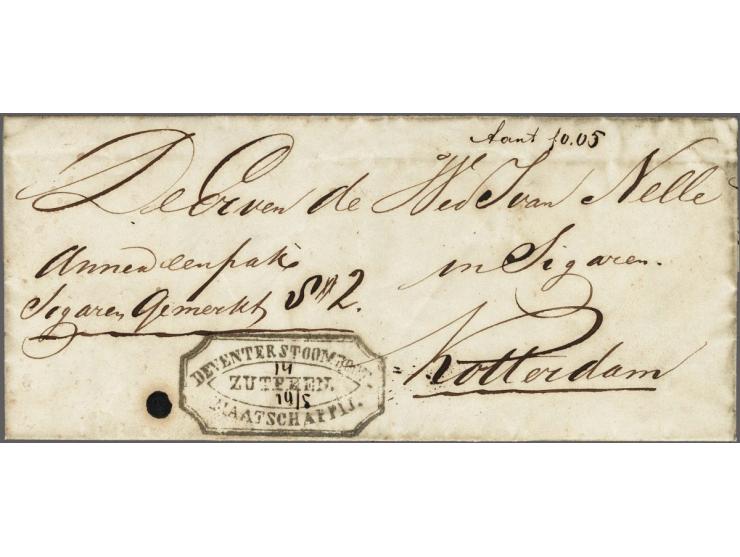 Aant f0.05
De Erven de Wed J van Nelle
Annex een pak
in Sigaren.
Sigaren Gemerkt S # 2.
Rotterdam
DEVENTER STOOMBOOT
14
ZUTPHEN.
19/5
MAATSCHAPPIJ.